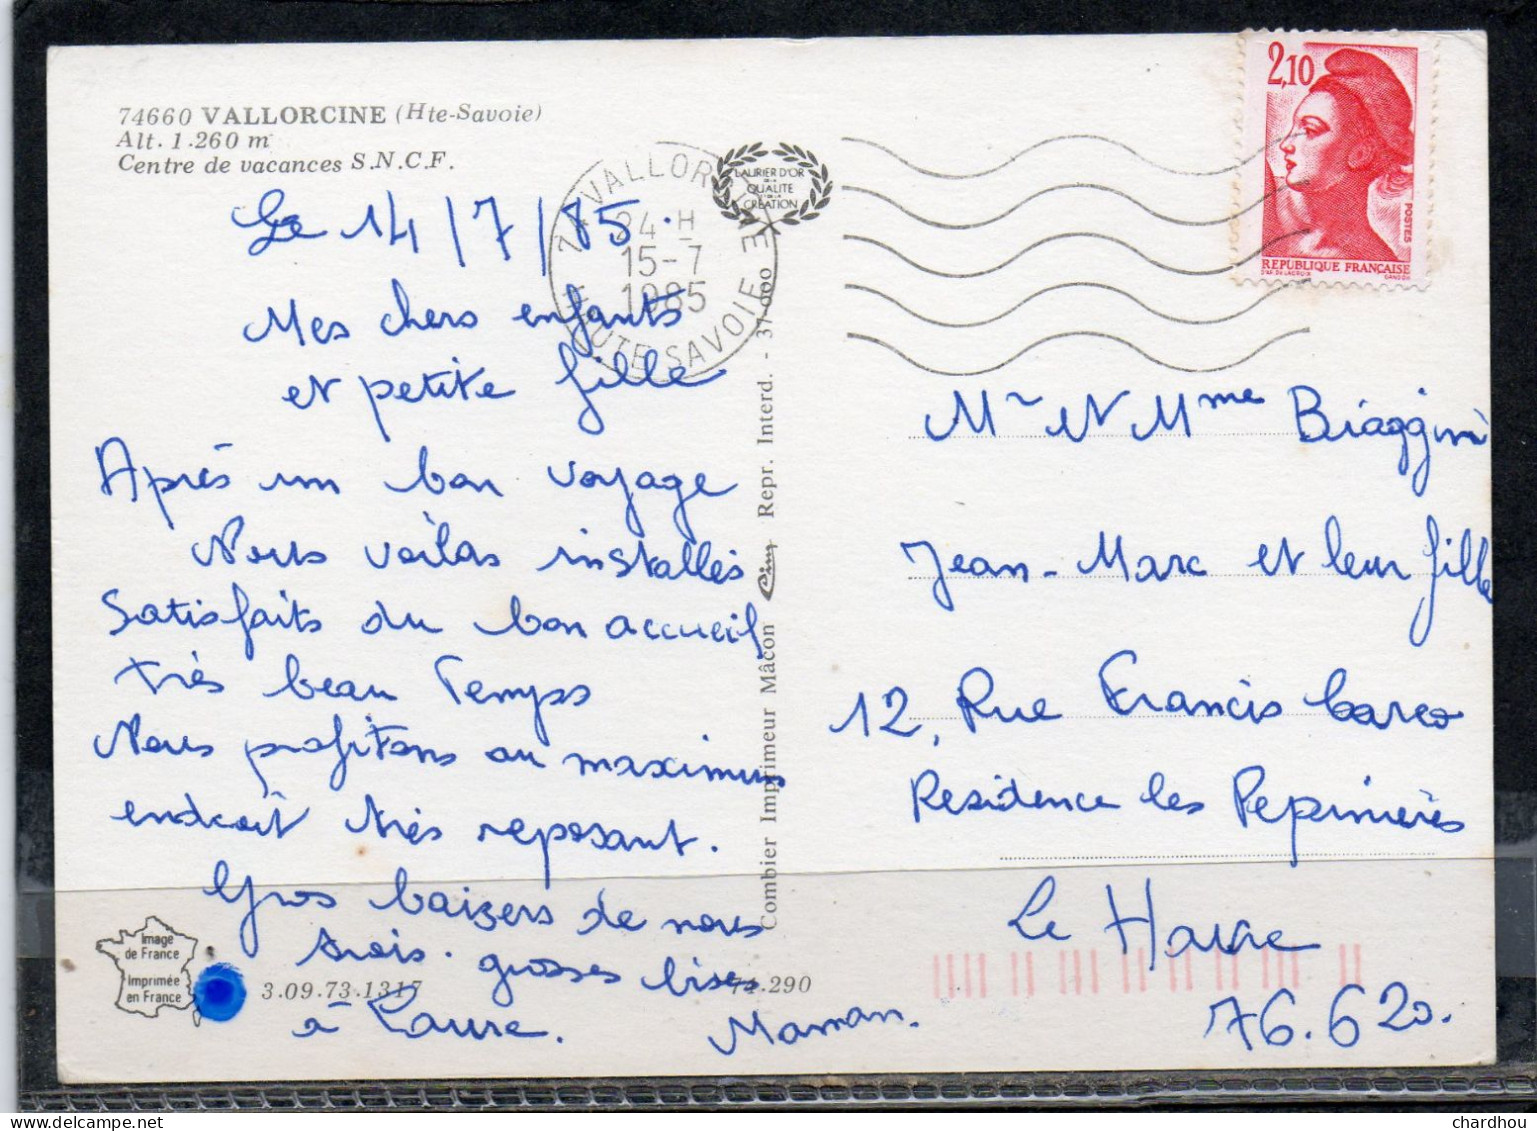 74660 VALLORCINE (Hte-Savoie)
Alt. 1.260 m
Centre de vacances S.N.C.F.
Le 14/7/85.
Mes chers enfants
et petite fille
Après un bon voyage
Nous voilas installés
Satisfaits du bon accueil
très beau Temps
Nous profitons au maximum
endroit très reposant.
Gros baisers de nous
trois. grosses bises
à Laure.
Maman.
Image
de France
Imprimée
en France
3.09.73.1317
74.290
Combier Imprimeur Mâcon Cim Repr. Interd. - 37 000
LAURIER D'OR
DE LA
QUALITÉ
ET DE LA
CRÉATION
74 VALLORCINE
24 H
15-7
1985
HAUTE SAVOIE
2,10
POSTES
REPUBLIQUE FRANÇAISE
D'AP. DELACROIX
GANDON
Mr et Mme Biaggini
Jean-Marc et leur fille
12, Rue Francis Carco
Residence les Pepinières
Le Havre
76.620.
chardhou